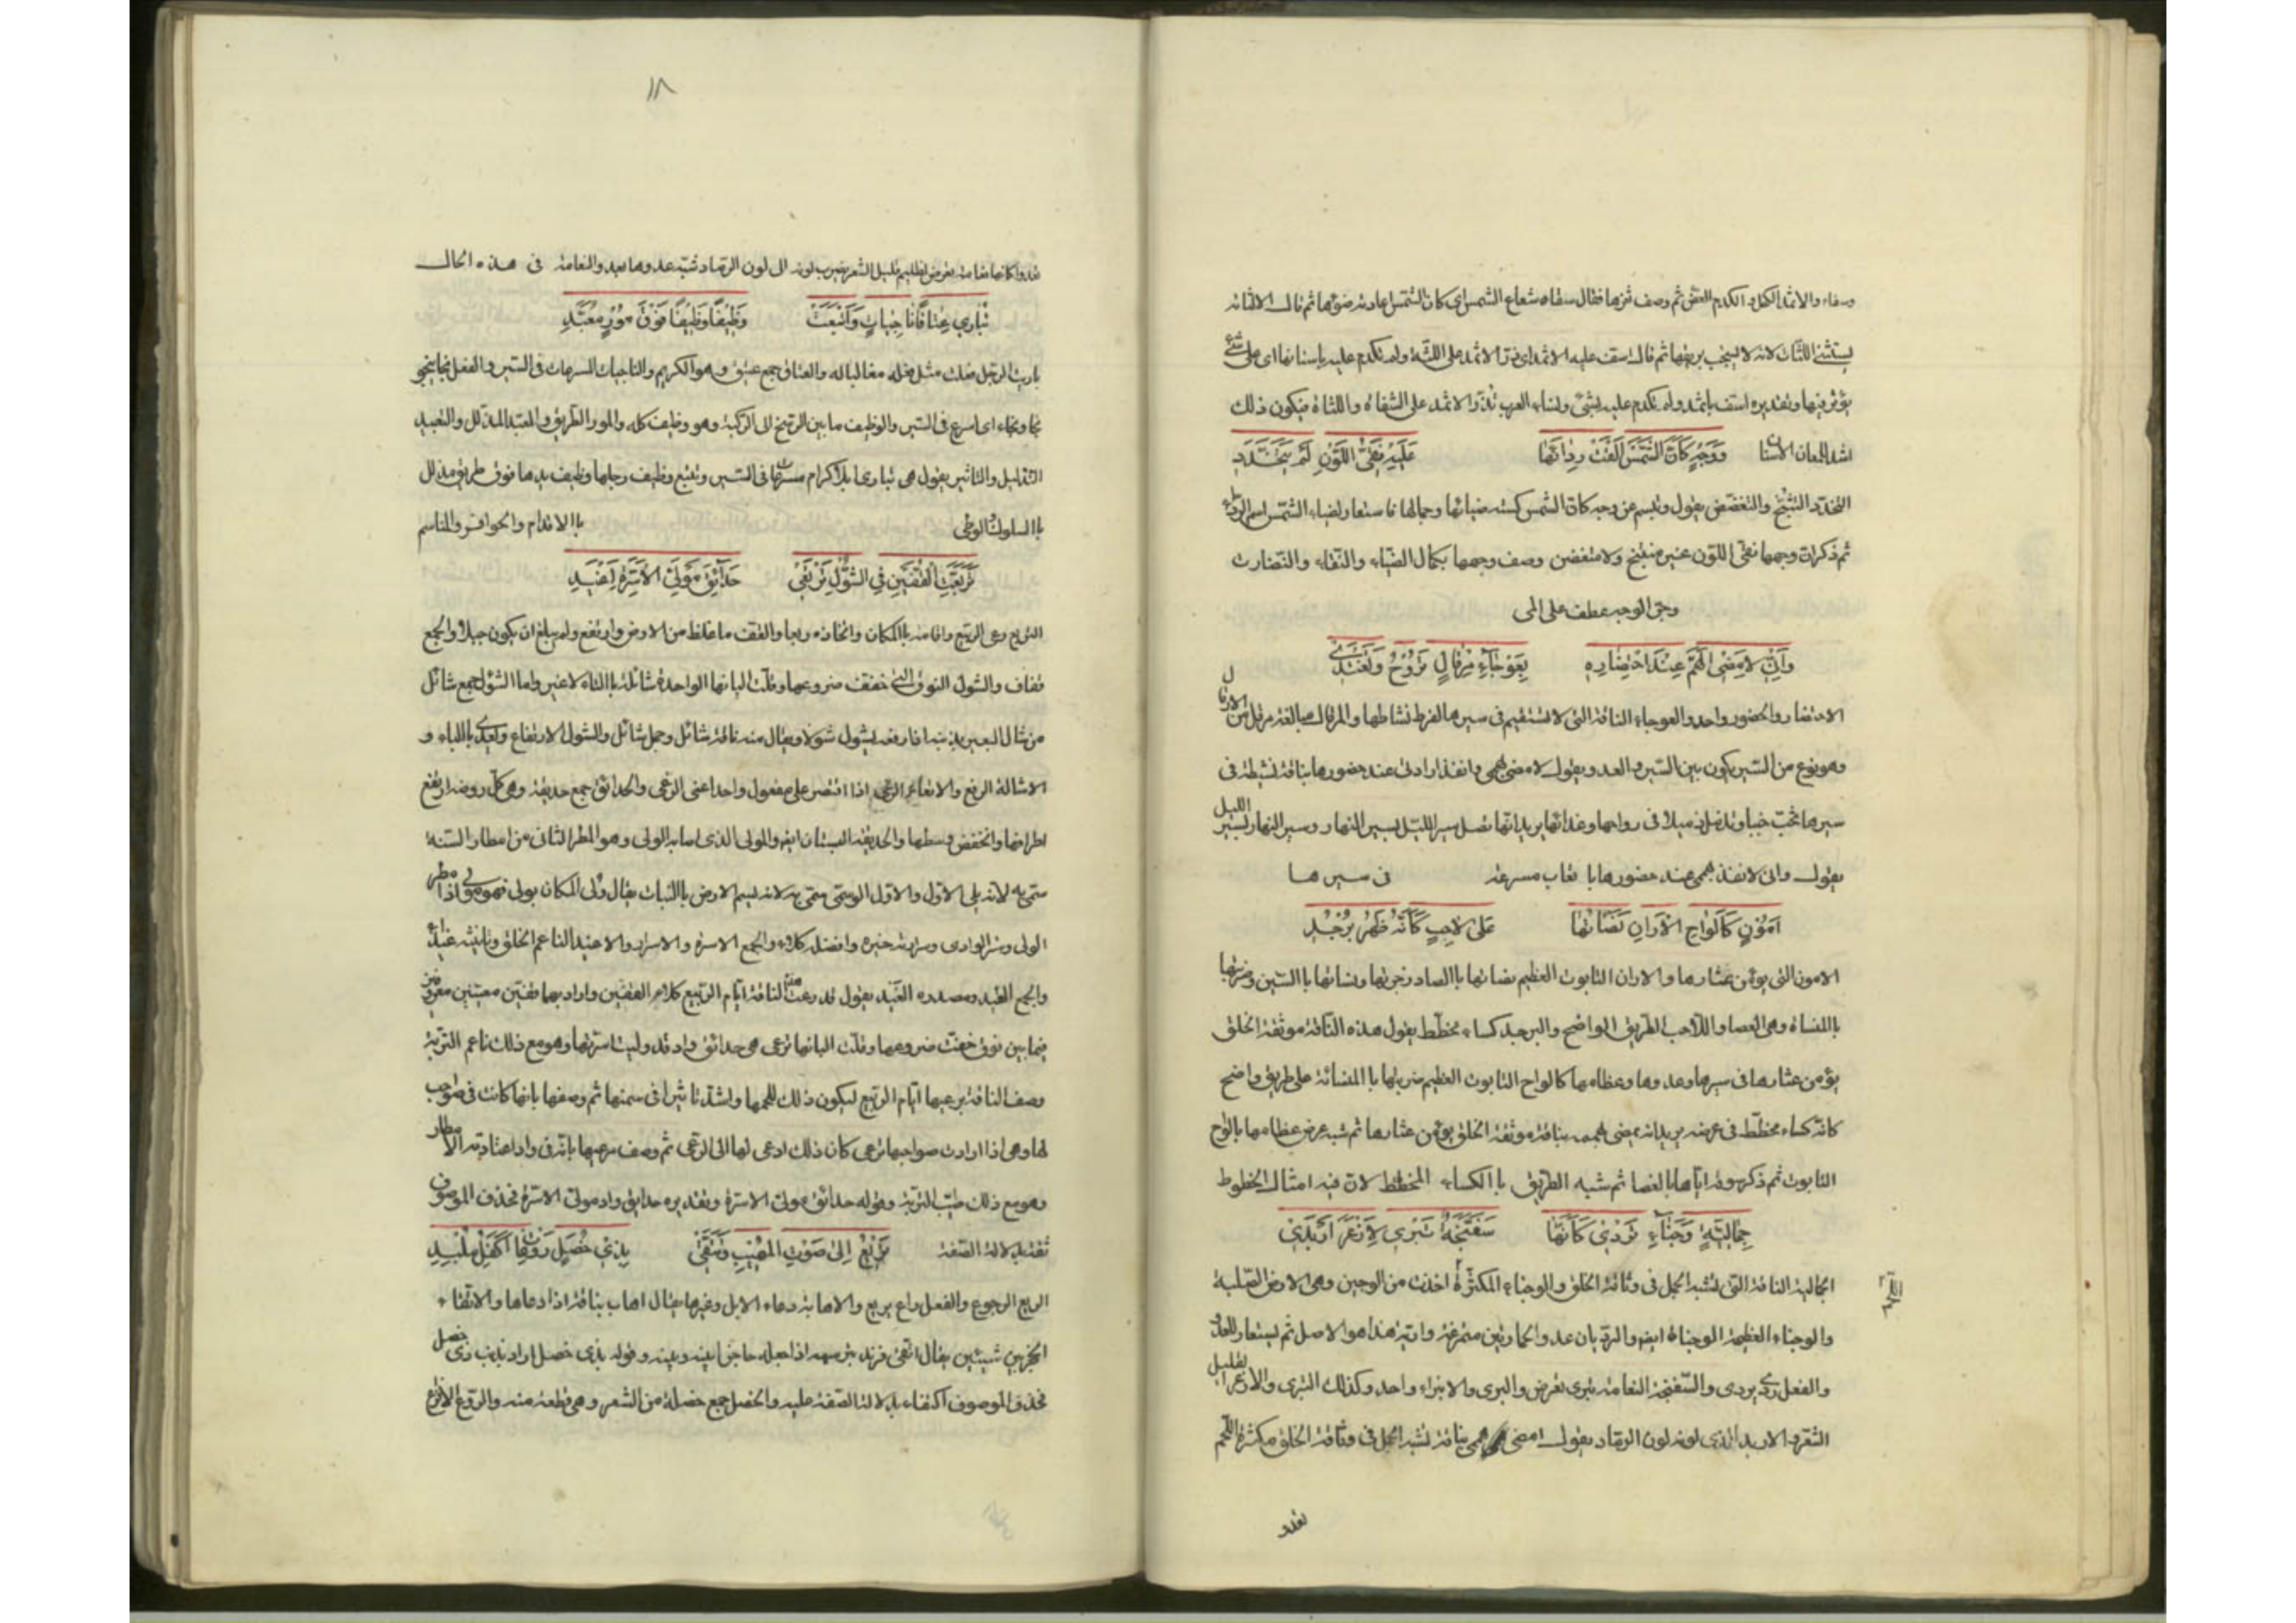 وصفاء والاثمد الكحل والكدم العض ثم وصف ثغرها فقال سقاه شعاع الشمس اى كان الشمس اعارته ضوئها ثم قال الا لثاته
يستثنى اللثات لانه لا يستحب بريقها ثم قال اسف عليه الاثمد اى ذر الاثمد على اللثة ولم تكدم عليه باسنانها اى على شئ
يؤثر فيها وتقديره اسف باثمد ولم تكدم عليه بشئ ونساء العرب تذر الاثمد على الشفاه واللثاة فيكون ذلك
اشد للمعان الاسنان وَوَجْهٍ كَأَنَّ الشَّمْسَ اَلْقَتْ رِدَائَهَا عَلَيْهِ نَقِيُّ اللَّوْنِ لَمْ يَتَخَدَّدِ
التخدد التشنج والتغضض يقول وتبسم عن وجه كان الشمس كسته ضيائها وجمالها فاستعار لضياء الشمس اسم الرداء
ثم ذكر ان وجهها نقى اللون غير متشنج ولا متغضن وصف وجهها بكمال الضياء والنقاء والنضارت
وجر الوجه عطف على المى
وَاِنِّى لَاُمْضِى الهَمَّ عِنْدَ احْتِضَارِهِ بِعَوْجَاءَ مِرْقَالٍ تَرُوحُ وَتَغْتَدِى
الاحتضار والحضور واحد والعوجاء الناقة التى لا تستقيم فى سيرها لفرط نشاطها والمرقال مبالغة مرقل من الارقال
وهو نوع من السير يكون بين السير والعدو يقول لامضى همى وانفذ ارادتى عند حضورها بناقة نشيطة فى
سيرها تخب خببا وتذمل ذميلا فى رواحها وغدائها يريد انها تصل سير الليل بسير النهار وسير النهار بسير الليل
يقول وانى لانفذ همى عند حضورها باتعاب مسرعة فى سيرها
اَمُوْنٍ كَاَلْوَاحِ الْاَرَانِ نَصَاْتُهَا عَلَى لَاحِبٍ كَأَنَّهُ ظَهْرُ بُرْجُدِ
الامون التى يؤمن عثارها والاران التابوت العظيم نصاتها باالصاد زجرتها ونساتها باالسين وضربتها
باالمنساة وهى العصا واللاحب الطريق الواضح والبرجد كساء مخطط يقول هذه الناقة موثقة الخلق
يؤمن عثارها فى سيرها وعدوها وعظامها كالواح التابوت العظيم ضربتها باالمنسائة على طريق واضح
كانه كساء مخطط فى عرضه يريد انه يمضى همه بناقة موثقة الخلق يؤمن عثارها ثم شبه عرض عظامها بالواح
التابوت ثم ذكر سوقه اياها بالعصا ثم شبه الطريق باالكساء المخطط لان فيه امثال الخطوط
جِمَالِيَّةٍ وَجْنَاءَ تَرْدِىْ كَأَنَّهَا سَفَنَّجَةٌ تَبْرِى لِاَزْعَرَ اَرْبَدِىْ
الجمالية الناقة التى تشبه الجمل فى وثاقة الخلق والوجناء المكثرة اخذت من الوجين وهى الارض الصلبة
اللحم
والوجناء العظيمة الوجناة ايضا والرديان عدو الحمار بين متمرغه واريه هذا هو الاصل ثم يستعار للعدو
والفعل ردى يردى والسفنجة النعامة تبرى تعرض والبرى والانبراء واحد وكذلك التبرى والازعر القليل
الشعر والاربد الذى لونه لون الرماد يقول امضى همى بناقة تشبه الجمل فى وثاقة الخلق مكثرة اللحم
تعدو
١٨
تعدوا كانها نعامة تعرض لظليم قليل الشعر يضرب لونه الى لون الرماد شبه عدوها بعدو النعامة فى هذه الحال
تُبَارِي عِتَاقًا نَاجِيَاتٍ وَاَتْبَعَتْ وَظِيْفًا وَظِيْفًا فَوْقَ مَوْرٍ مُعَبَّدِ
باريت الرجل فعلت مثل فعله مغالبا له والعتاق جمع عتيق وهو الكريم والناجيات المسرعات فى السير والفعل نجا ينجو
نجا ونجاء اى اسرع فى السير والوظيف ما بين الرسغ الى الركبة وهو وظيف كله والمور الطريق والمعبد المذلل والتعبيد
التذليل والتاثير يقول هى تبارى ابلا كرام مسرعات فى السير وتتبع وظيف رجلها وظيف يدها فوق طريق مذلل
باالسلوك والوطى باالاقدام والحوافر والمناسم
تَرَبَّعَتِ القُفَّيْنِ فِى الشَّوْلِ تَرْتَعِى حَدَائِقَ مَوْلِىِّ الْاَسِرَّةِ اَغْيَدِ
التربع رعى الربيع واقامة باالمكان واتخاذه ربعا والقف ما غلظ من الارض وارتفع ولم يبلغ ان يكون جبلا والجمع
قفاف والشول النوق التى خفت ضروعها وقلت البانها الواحدة شائلة باالتاء لا غير واما الشول جمع شائل
من شال البعير بذنبه اذا رفعه يشول شولا ويقال منه ناقة شائل وجمل شائل والشول الارتفاع ويعدى باالباء و
الاشالة الرفع والارتعاء الرعى اذا اقتصر على مفعول واحد اعنى الرعى والحدائق جمع حديقة وهى كل روضة ارتفع
اطرافها وانخفض وسطها والحديقة البستان ايضا والمولى الذى اصابه الولى وهو المطر الثانى من امطار السنة
سمى به لانه يلى الاول والاول الوسمى سمى به لانه يسم الارض باالنبات يقال ولى المكان يولى فهو مولى اذا مطر
الولى وسر الوادى وسرارته خيره وافضله كلاء والجمع الاسرة والاسرار والاغيد الناعم الخلق وتانيثه غيداء
والجمع الغيد ومصدره الغيد يقول قد رعت هذه الناقة ايام الربيع كلاء القفين واراد بهما قفين معينين معروفين
فيما بين نوق خفت ضروعها وقلت البانها ترعى هى حدائق واد قد وليت اسرتها وهو مع ذلك ناعم التربة
وصف الناقة برعيها ايام الربيع ليكون ذلك للحمها واشد تاثيرا فى سمنها ثم وصفها بانها كانت فى صواحب
لها وهى اذا ارادت صواحبها ترعى كان ذلك ادعى لها الى الرعى ثم وصف مرعيها بانه فى واد اعتادته الامطار
وهو مع ذلك طيب التربة وقوله حدائق مولى الاسرة وتقديره حدايق واد مولى الاسرة فحذف الموصوف
ثقة بدلالة الصفة تَرِيْعُ اِلَى صَوْتِ المُهِيْبِ وَتَتَّقِىْ بِذِىْ خُصَلٍ رَوْعَاتِ اَكْلَفَ مُلْبِدِ
الريع الرجوع والفعل راع يريع والاهابة دعاء الابل وغيرها يقال اهاب بناقة اذا دعاها والاتقاء
الحجز بين شيئين يقال اتقى قرنه بترسه اذا جعله حاجزا بينه وبينه وقوله بذى خصل اراد بذنب ذى خصل
فحذف الموصوف اكتفاء بدلالة الصفة عليه والخصل جمع خصلة من الشعر وهى قطعة منه والروع الافزاع